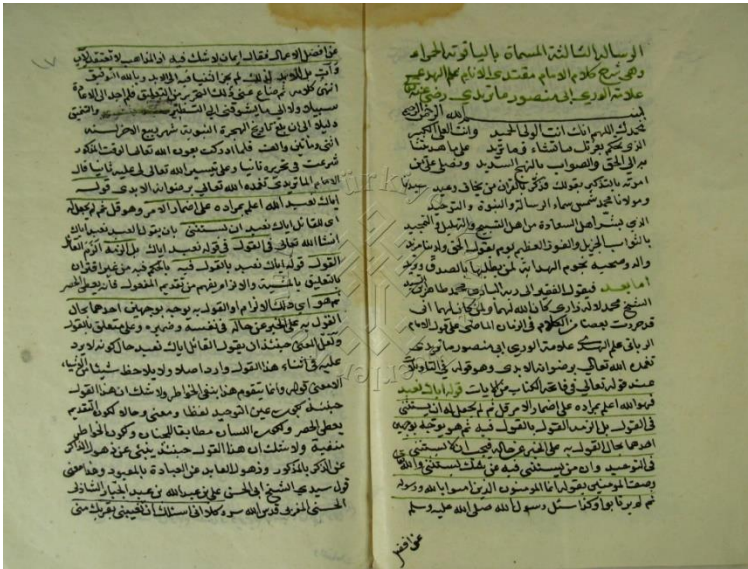 الرسالة الثالثة المسماة بالياقوتة الحمراء
وهى شرح كلام الامام مقتدى الانام علم الهدى
علامة الورى ابى منصور ماتريدى رضى عنه
بسم الله الرحمن الرحيم
نحمدك اللهم انك انت الولى الحميد وانت العلى الكبير
الذى يحكم بعزتك ما تشاء فيما تريد على ما هديتنا
الى الحق والصواب بالنهج السديد ونصلى على من
امرته بالتذكير بقولك فذكر بالقرآن من يخاف وعيد سيدنا
ومولانا محمد شمس سماء الرسالة والنبوة والتوحيد
الذى يبشر اهل السعادة من اهل التسبيح والتهليل والتحميد
بالثواب الجزيل والفوز العظيم يوم يقول الحق
واله وصحبه نجوم الهداية لمن يطلبها بالصدق
اما بعد فيقول الفقير الى ربه البارى محمد طاهر بن السيد
الشيخ محمد لاله زارى كان الله لهما ولمن كان لهما انى
قد حررت بعضا من الكلام فى الزمان الماضى على قول الامام
الربانى علم الهدى علامة الورى ابى منصور ماتريدى
تغمده الله تعالى برضوانه الابدى وهو قوله فى التأويلات
عند قوله تعالى فى فاتحة الكتاب من الآيات قوله اياك نعبد
فهو الله اعلم بمراده على اضمار الامر قل ثم لم يجعل له ان يستثنى
فى القول بل الزمه القول بالقول فيه ثم هو يوجه بوجهين
احدهما بحال القول به على الخبر عن حاله فيجب ان لا يستثنى
فى التوحيد وان من يستثنى فيه عن شك يستثنى والله تعالى
وصف المؤمنين بقوله انما المؤمنون الذين امنوا بالله ورسوله
ثم لم يرتابوا وكذا سئل رسول الله صلى الله عليه وسلم
عن افضل
عن افضل الاعمال فقال ايمان لا شك فيه
انتهى كلامه ثم ضاع عنى
سبيلا ولا الى ما يشوقنى الى
دليلا الى ان بلغ تاريخ الهجرة النبوية شهر ربيع الاخر لسنة
اثنى ومأتين والف فلما ادركت بعون الله تعالى الوقت المذكور
شرعت فى تحريره ثانيا وعلى تيسير الله تعالى لى عليه ثانيا قال
الامام الماتريدى تغمده الله تعالى برضوانه الابدى قوله
اياك نعبد الله اعلم بمراده على اضمار الامر وهو قل ثم لم يجعل له
اى للقائل اياك نعبد ان يستثنى بان يقول نعبد اياك
ان شاء الله تعالى فى القول فى قوله نعبد اياك بل الزمه الزم القائل
القول قوله اياك نعبد بالقول فيه بالحكم فيه من غير اقتران
بالتعليق بالمشية والالزام يفهم من تقديم المفعول فانه يعطى الحصر
ثم هو اى ذلك الالزام او القول به يوجه بوجهين احدهما بحال
القول به على الخبر عن حاله فى نفسه وضميره وعلى متعلق بالقول
وكون المعنى حينئذ ان يقول القائل اياك نعبد حال كونه لا يرد
عليه فى اثناء هذا القول وارد اصلا ولا يلاحظ شيئا
الا معنى قوله وانما يتقوم هذا بنفى الخواطر ولا شك ان هذا القول
حينئذ يكون عين التوحيد لفظا ومعنى وحالا لكون التقديم
يعطى الحصر وكون اللسان مطابقة للجنان وكون الخواطر
منفية ولا شك ان هذا القول حينئذ ينبئ عن ذهول الذاكر
عن الذكر بالمذكور وذهول العابد عن العبادة بالمعبود وهذا معنى
قول سيدى الشيخ ابى الحسن على بن عبد الله بن عبد الجبار الشاذلى
الحسنى المغربى قدس الله سره كلا انى اسئلك ان تغيبنى بقربك منى